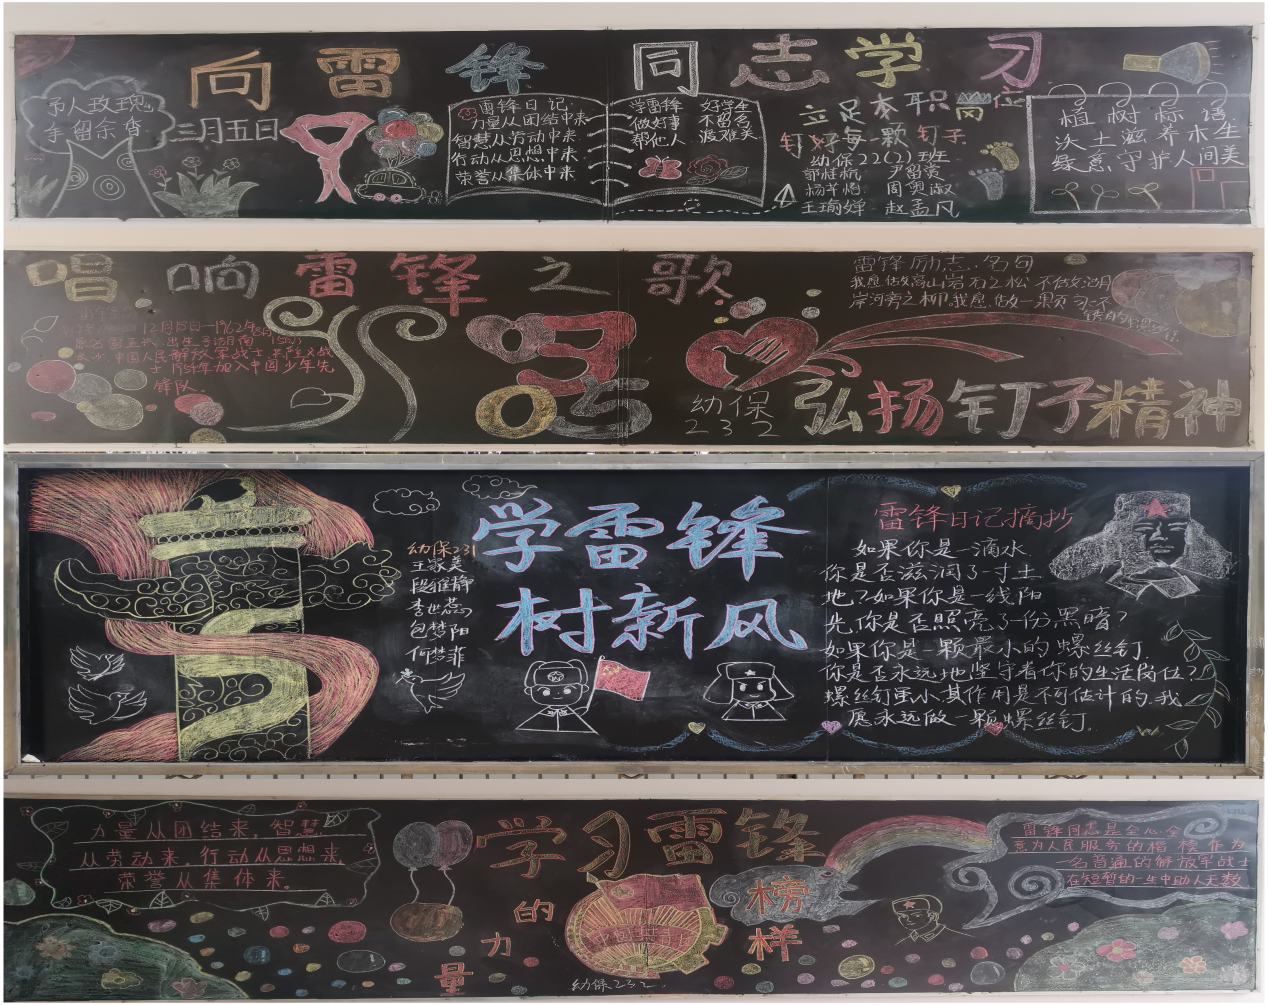 向雷锋同志学习
予人玫瑰
手留余香
三月五日
雷锋日记
力量从团结中来
智慧从劳动中来
行动从思想中来
荣誉从集体中来
学雷锋 好学生
做好事 不留名
帮他人
立足本职岗位
钉好每一颗钉子
幼保22(2)班
王瑜婵 赵孟凡
植树标语
沃土滋养木生
绿意守护人间美
唱响雷锋之歌
12月18日—1962年8月
出生于湖南
中国人民解放军战士
士 1954年加入中国少年先
锋队.
幼保
232
雷锋励志名句
我愿做高山岩石之松 不做湖
岸河旁之柳.我愿做一颗
弘扬钉子精神
幼保231
王家美
段雅静
李世蕊
包梦阳
何梦菲
学雷锋
树新风
雷锋日记摘抄
如果你是一滴水.
你是否滋润了一寸土
地?如果你是一线阳
光.你是否照亮了一份黑暗?
如果你是一颗最小的螺丝钉.
你是否永远地坚守着你的生活岗位?
螺丝钉虽小.其作用是不可估计的.我
愿永远做一颗螺丝钉.
力量从团结来.智慧
从劳动来.行动从思想来.
荣誉从集体来.
学习雷锋
榜样
的力量
幼保232.
雷锋同志是全心全
意为人民服务的楷模 作为
一名普通的解放军战士
在短暂的一生中助人无数